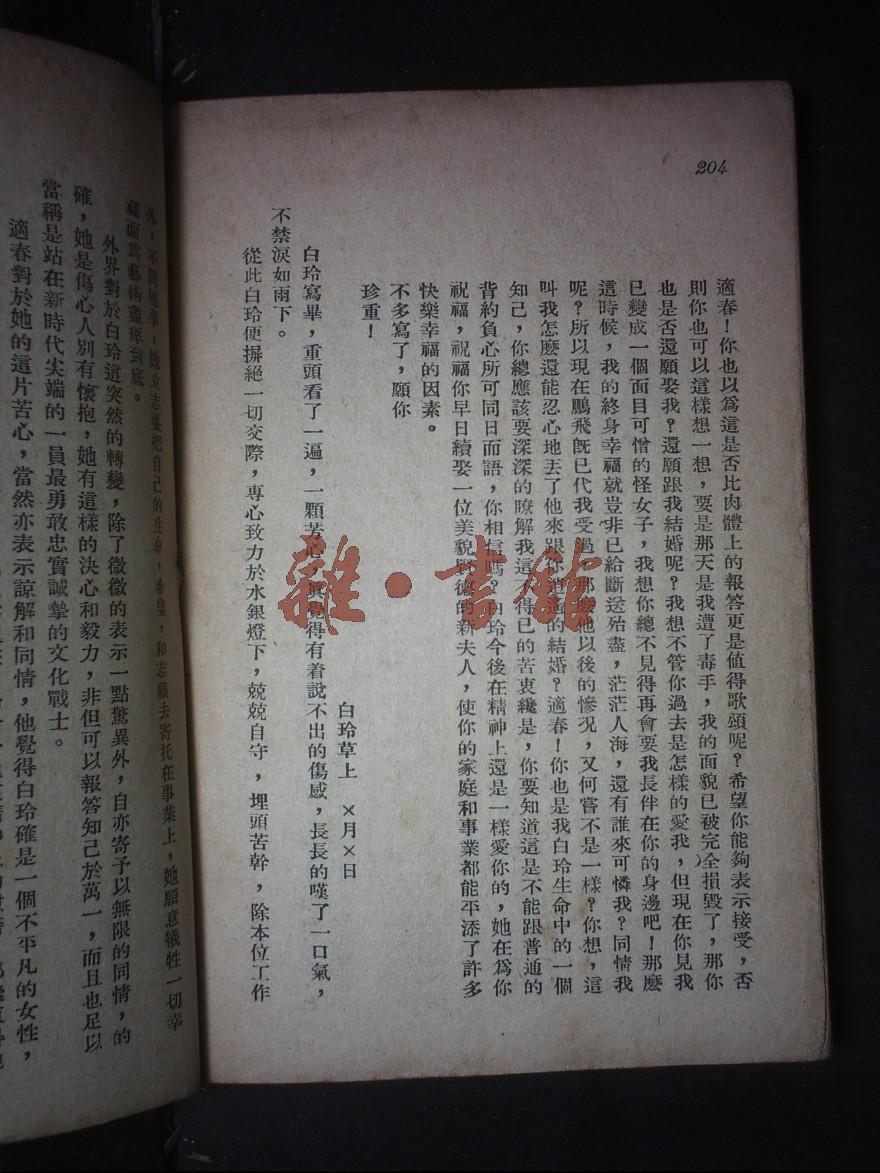 204
適春！你也以爲這是否比肉體上的報答更是值得歌頌呢？希望你能夠表示接受，否
則你也可以這樣想一想，要是那天是我遭了毒手，我的面貌已被完全損毀了，那你
也是否還願娶我？還願跟我結婚呢？我想不管你過去是怎樣的愛我，但現在你見我
已變成一個面目可憎的怪女子，我想你總不見得再會要我長伴在你的身邊吧！那麼
這時候，我的終身幸福就豈非已給斷送殆盡，茫茫人海，還有誰來可憐我？同情我
呢？所以現在鵬飛旣已代我受過，那麼他以後的慘况，又何嘗不是一樣？你想，這
叫我怎麼還能忍心地丟了他來跟你的結婚？適春！你也是我白玲生命中的一個
知己，你總應該要深深的瞭解我這不得已的苦衷纔是，你要知道這是不能跟普通的
背約負心所可同日而語，你相信嗎？白玲今後在精神上還是一樣愛你的，她在爲你
祝福，祝福你早日續娶一位美貌賢德的新夫人，使你的家庭和事業都能平添了許多
快樂幸福的因素。
不多寫了，願你
珍重！
白玲草上　×月×日
白玲寫畢，重頭看了一遍，一顆芳心眞覺得有着說不出的傷感，長長的嘆了一口氣，
不禁淚如雨下。
從此白玲便摒絕一切交際，專心致力於水銀燈下，兢兢自守，埋頭苦幹，除本位工作
外，不問他事，她立志要把自己的生命，希望，和志願去寄托在事業上，她願意犧牲一切幸
福而爲藝術盡瘁到底。
外界對於白玲這突然的轉變，除了微微的表示一點驚異外，自亦寄予以無限的同情，的
確，她是傷心人別有懷抱，她有這樣的決心和毅力，非但可以報答知己於萬一，而且也足以
當稱是站在新時代尖端的一員最勇敢忠實誠摯的文化戰士。
適春對於她的這片苦心，當然亦表示諒解和同情，他覺得白玲確是一個不平凡的女性，
雜·書館